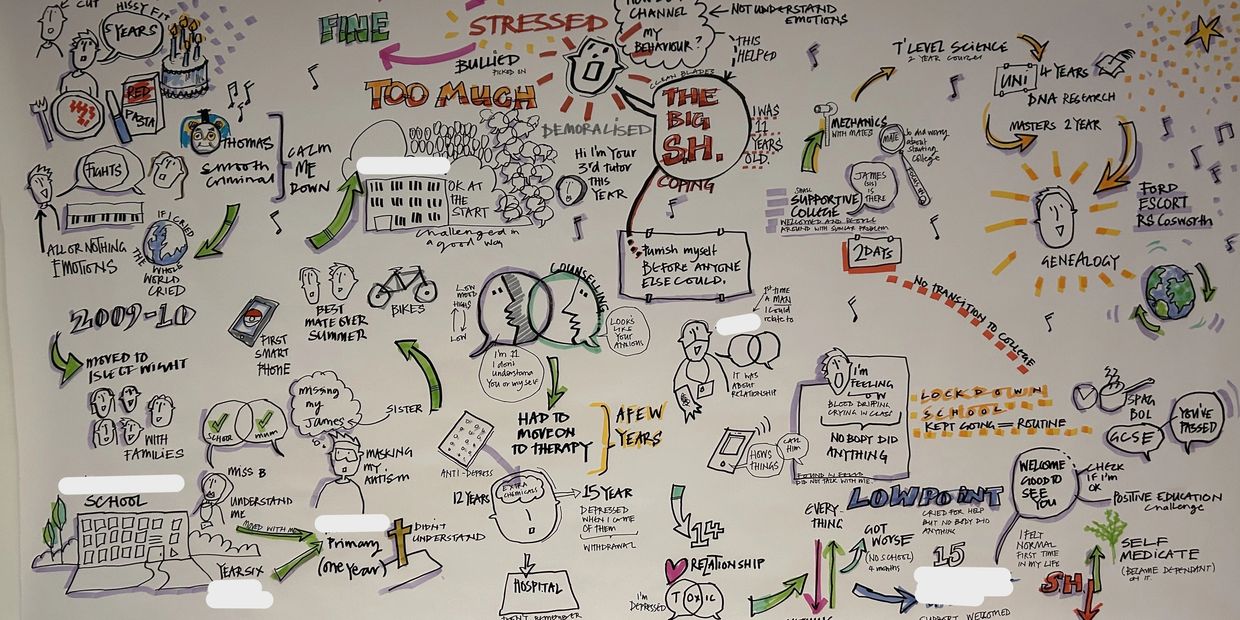 CUT
HISSY FIT
5 YEARS
RED
PASTA
THOMAS
Smooth
Criminal
CALM
ME
DOWN
FIGHTS
ALL OR NOTHING
EMOTIONS
IF I CRIED
THE
WHOLE
WORLD
CRIED
2009-10
MOVED TO
ISLE OF WIGHT
WITH
FAMILIES
SCHOOL
MUM
MISS B
UNDERSTAND
ME
MOVED WITH ME
SCHOOL
YEAR SIX
Primary
(one year)
DIDN'T
UNDERSTAND
MASKING
MY
AUTISM
MISSING
my
James
SISTER
FIRST
SMART
PHONE
BEST
MATE OVER
SUMMER
BIKES
FINE
STRESSED
BULLIED
PICKED ON
TOO MUCH
DEMORALISED
OK AT
THE
START
Challenged in
a good way
Hi I'm Your
3rd TUTOR
THIS
YEAR
CHANNEL
MY
BEHAVIOUR?
NOT UNDERSTAND
EMOTIONS
THIS
HELPED
CLEAN BLADES
THE
BIG
S.H.
I WAS
11
YEARS
OLD.
COPING
Punish myself
BEFORE ANYONE
ELSE COULD.
LOW MOOD
HIGHS
LOW
COUNSELLING
LOOKS
LIKE
YOUR
ANXIOUS
I'm 11
I don't
understand
You or myself
HAD TO
MOVE ON
TO THERAPY
A FEW
YEARS
ANTI-DEPRESS
12 YEARS
EXTRA
CHEMICALS
15 YEAR
DEPRESSED
WHEN I CAME
OFF THEM
WITHDRAWAL
HOSPITAL
DON'T REMEMBER
1st TIME
A MAN
I could
relate to
IT WAS
ABOUT
RELATIONSHIP
HOWS
THINGS
14
RELATIONSHIP
I'm
DEPRESSED
TOXIC
I'm
FEELING
LOW
BLOOD DRIPPING
CRYING IN CLASS
NOBODY DID
ANYTHING
DID NOT TALK WITH ME.
LOW POINT
CRIED FOR HELP
BUT NO BODY DID
ANYTHING
EVERY-
THING
GOT
WORSE
(NO SCHOOL)
4 months
15
SUPPORT WELCOMED
T'LEVEL SCIENCE
2 YEAR COURSE
UNI
4 YEARS
DNA RESEARCH
MASTERS 2 YEAR
MECHANICS
WITH MATES
MATE
JAMES
(SIS)
IS
THERE
SMALL
SUPPORTIVE
COLLEGE
WELCOMED AND PEOPLE
AROUND WITH SIMILAR PROBLEM
2 DAYS
NO TRANSITION TO COLLEGE
GENEALOGY
FORD
ESCORT
RS Cosworth
LOCKDOWN
SCHOOL
KEPT GOING = ROUTINE
SPAG
BOL
GCSE
YOU'VE
PASSED
WELCOME
GOOD TO
SEE
YOU
CHECK
IF I'm
OK
POSITIVE EDUCATION
Challenge
I FELT
NORMAL
FIRST TIME
IN MY LIFE
SH
SELF
MEDICATE
(BECAME DEPENDANT)
ON IT.